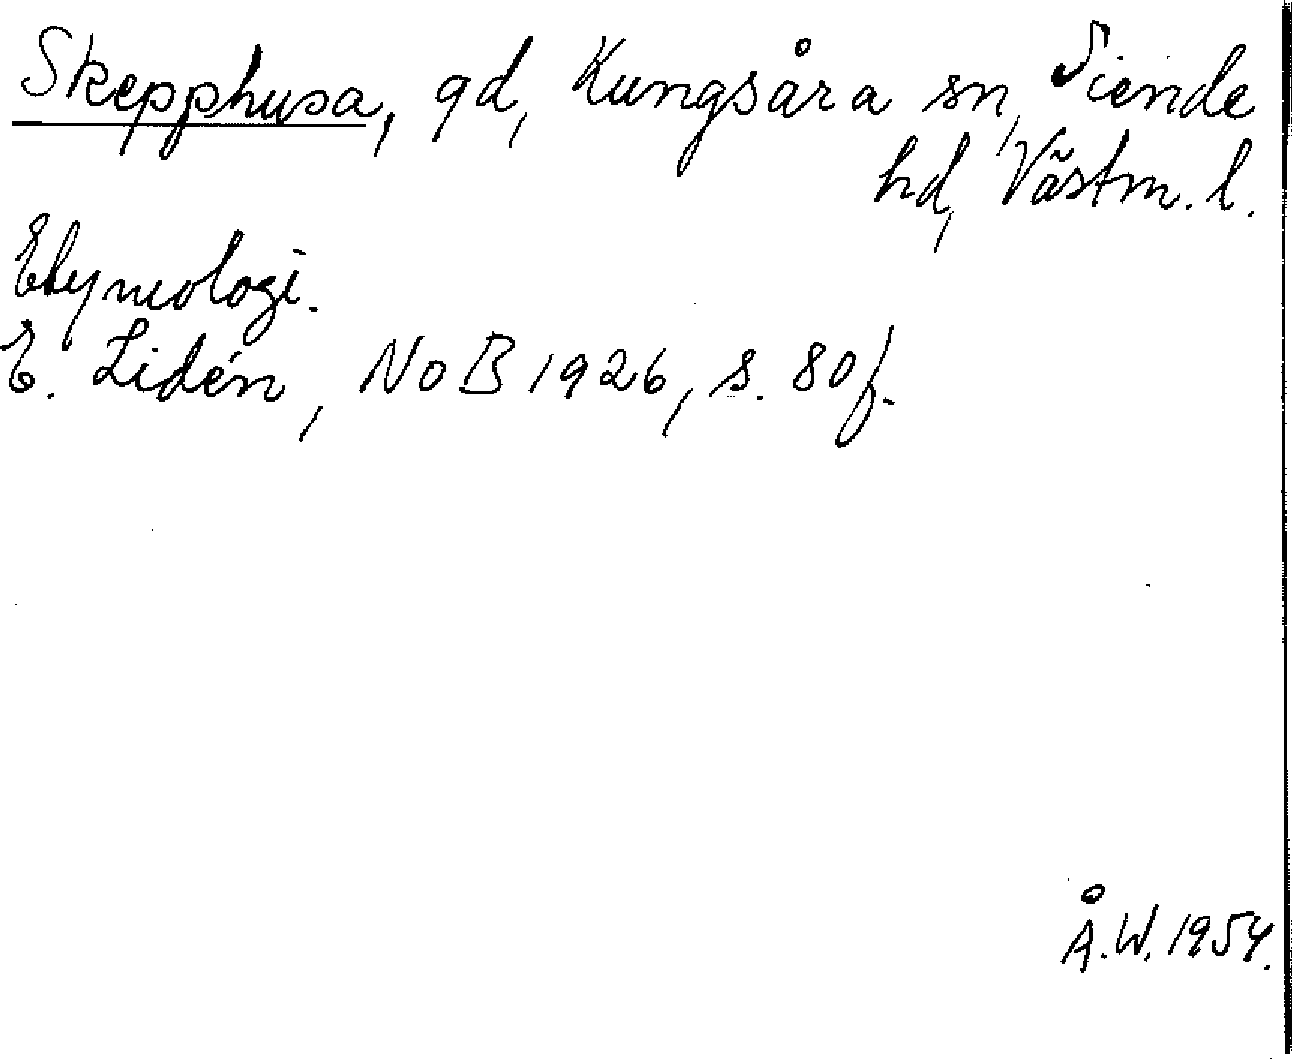 Skepphusa, gd, Kungsåra sn, Siende
hd, Västm. l.
Etymologi.
E. Lidén, NoB 1926, s. 80 f.
Å.W. 1954.